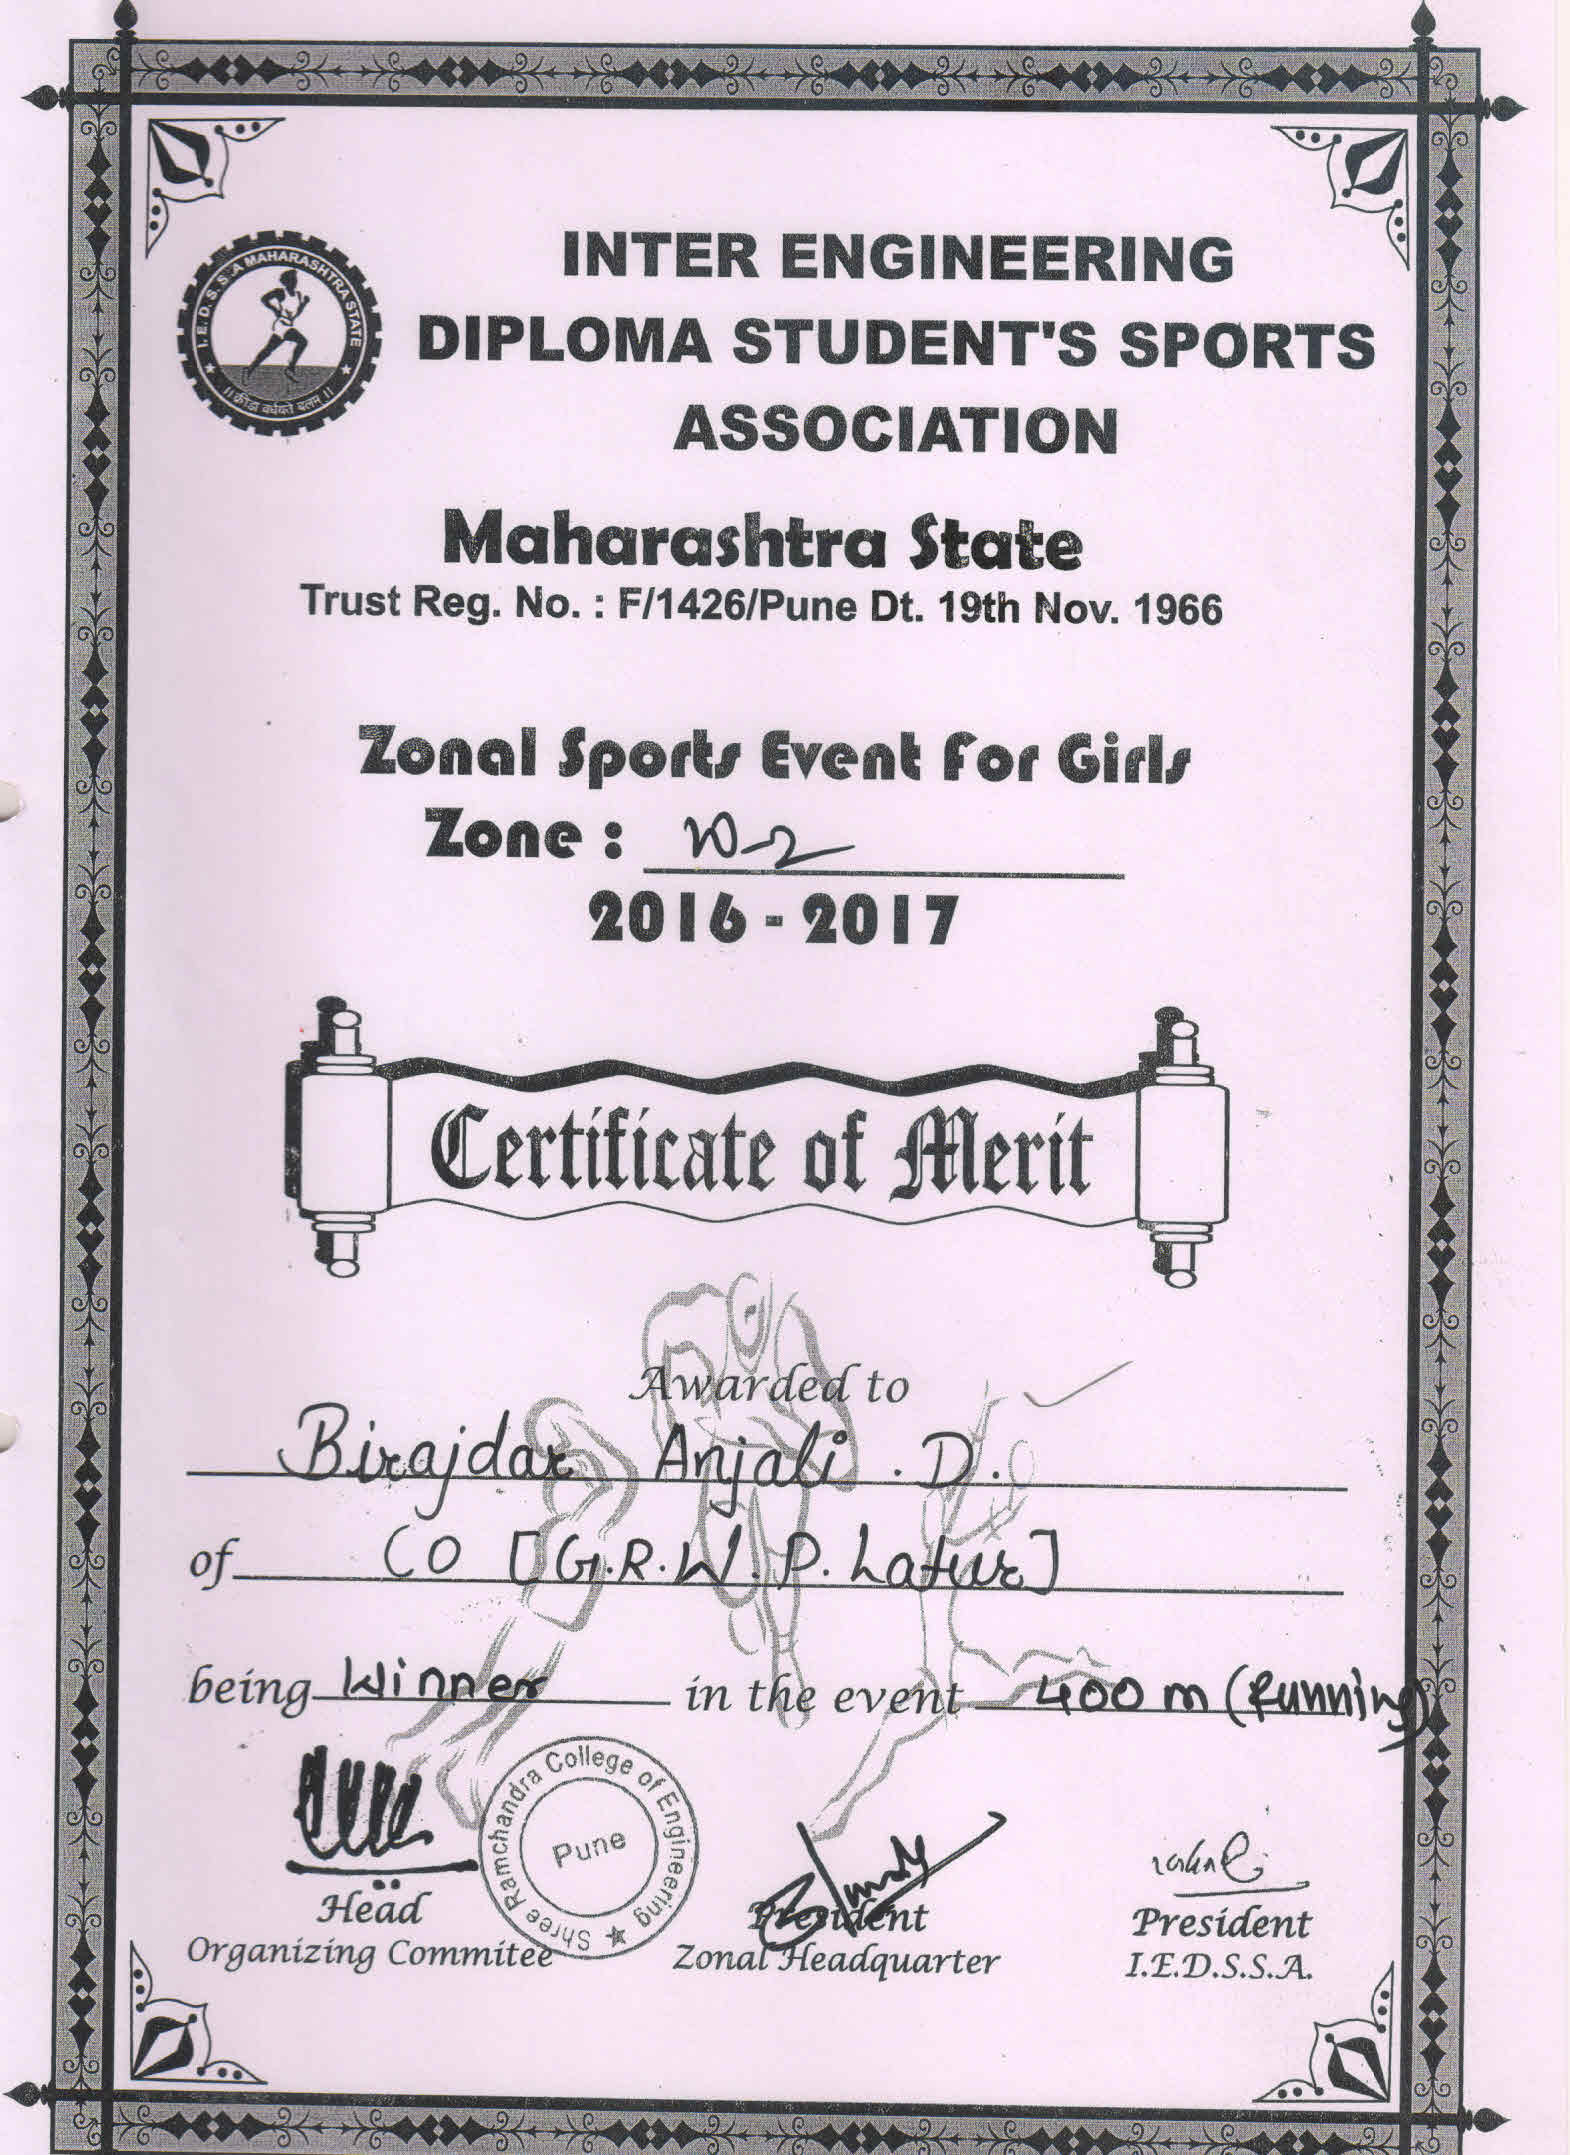 INTER ENGINEERING
DIPLOMA STUDENT'S SPORTS
ASSOCIATION
I. E. D. S. S. A MAHARASHTRA STATE
॥ क्रीडा वर्धयते बलम् ॥
Maharashtra State
Trust Reg. No. : F/1426/Pune Dt. 19th Nov. 1966
Zonal Sports Event For Girls
Zone :
2016 - 2017
Certificate of Merit
Awarded to
Birajdar Anjali . D.
of CO [G.R.W.P. Latur]
being Winner in the event 400 m (Running)
Shree Ramchandra College of Engineering
Pune
Head
Organizing Commitee
President
Zonal Headquarter
President
I.E.D.S.S.A.